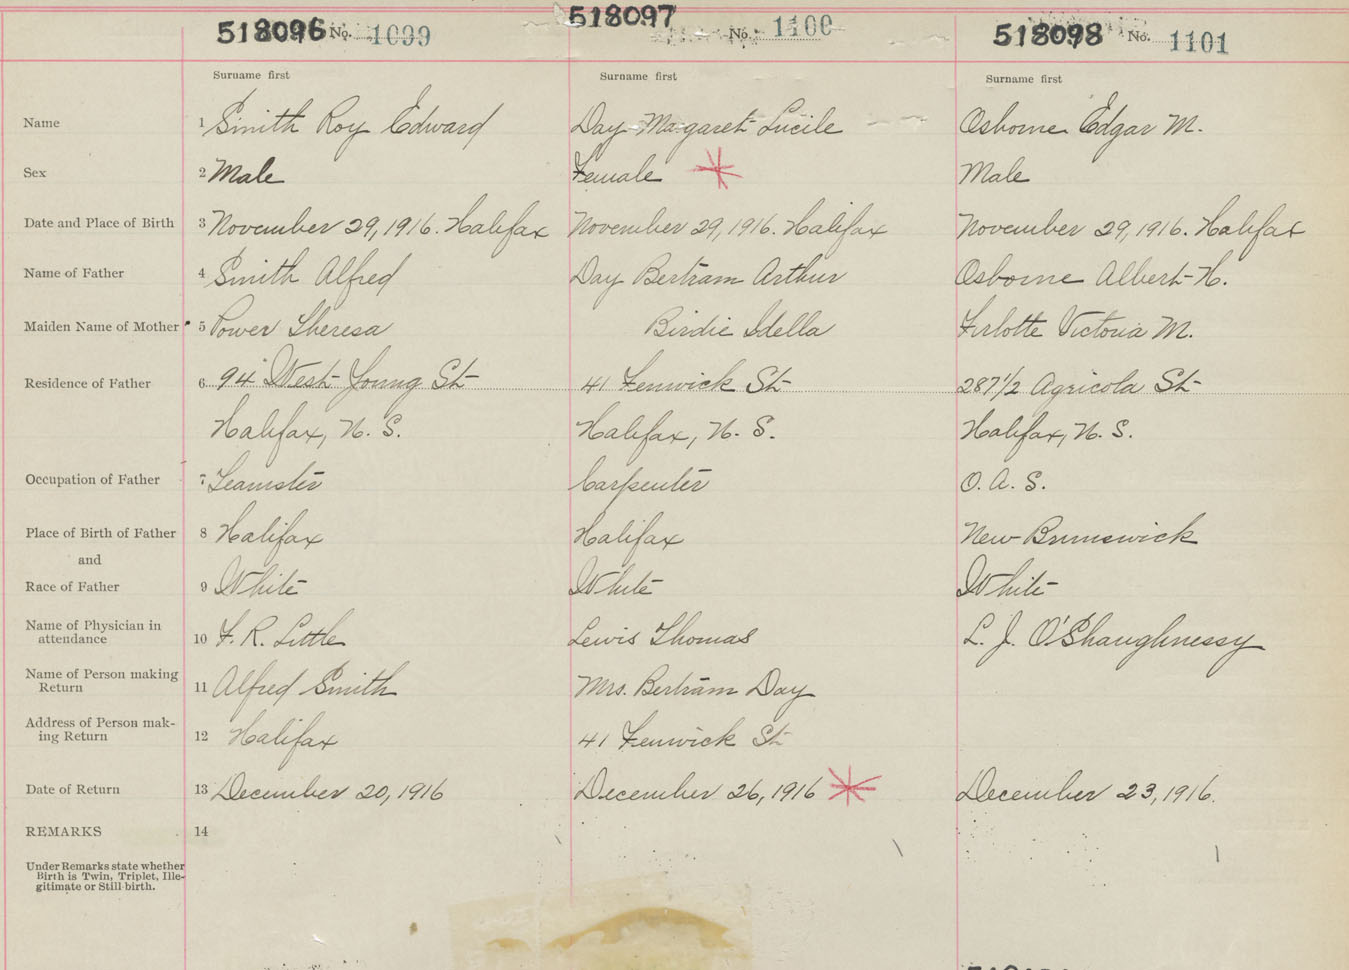 518096 No. 1099 518097 No. 1100 518098 No. 1101
Surname first Surname first Surname first
Name 1 Smith Roy Edward Day Margaret Lucile Osborne Edgar M.
Sex 2 Male Female Male
Date and Place of Birth 3 November 29, 1916. Halifax November 29, 1916. Halifax November 29, 1916. Halifax
Name of Father 4 Smith Alfred Day Bertram Arthur Osborne Albert H.
Maiden Name of Mother 5 Power Theresa Birdie Idella Firlotte Victoria M.
Residence of Father 6 94 West Young St 41 Fenwick St 287 1/2 Agricola St
Halifax, N. S. Halifax, N. S. Halifax, N. S.
Occupation of Father 7 Teamster Carpenter O. A. S.
Place of Birth of Father 8 Halifax Halifax New Brunswick
and
Race of Father 9 White White White
Name of Physician in
attendance 10 F. R. Little Lewis Thomas L. J. O'Shaughnessy
Name of Person making
Return 11 Alfred Smith Mrs. Bertram Day
Address of Person mak-
ing Return 12 Halifax 41 Fenwick St
Date of Return 13 December 20, 1916 December 26, 1916 December 23, 1916.
REMARKS 14
Under Remarks state whether
Birth is Twin, Triplet, Ille-
gitimate or Still birth.